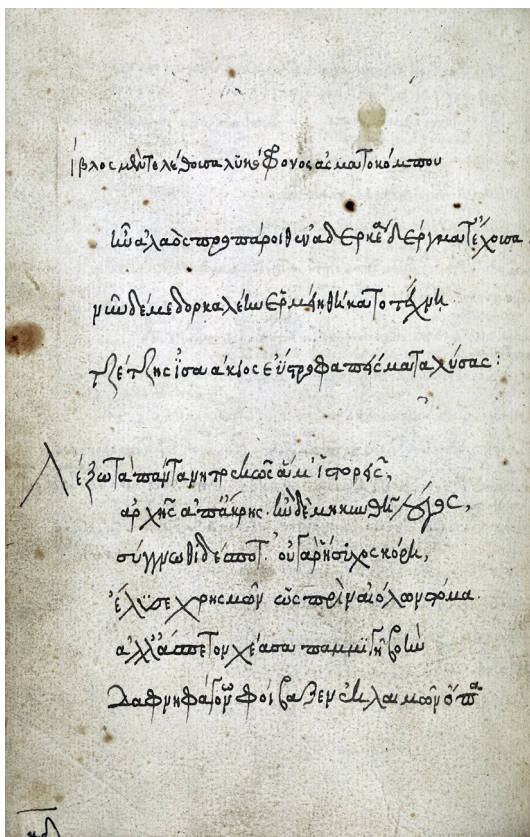 ίβλος μὲν τελέθουσα λυκόφρονος ἀσματοκόμπου
ἦν ἀλαὸς προπάροιθεν ἀδερκέα δέργματ' ἔχουσα
νῦν δέ με δορκαλέην τέχνη
τζέτζης ἰσαάκιος εὔστροφα λύσας:
Λέξω τὰ πάντα νητρεκῶς ἅ μ' ἱστορεῖς,
ἀρχῆς ἀπ' ἄκρης. ἢν δὲ μηκυνθῇ λόγος,
σύγγνωθι δέσποτ'. οὐ γὰρ ἥσυχος κόρη,
ἔλϊσε χρησμῶν ὡς πρὶν αἰόλων στόμα.
ἀλλ' ἄσπετον χέασα παμμιγῆ βοὴν
δαφνηφάγων φοίβαζεν ἐκ λαιμῶν ὄπα